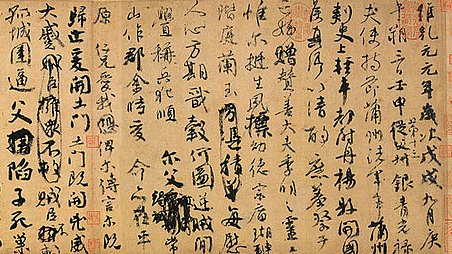 維乾元元年歲次戊戌九月庚
午朔三日壬申第十三從父銀青光祿
夫使持節蒲州諸軍事蒲州
刺史上輕車都尉丹楊縣開國
侯真卿以清酌庶羞祭于
亡姪贈贊善大夫季明之靈曰
惟爾挺生夙標幼德宗廟瑚璉
階庭蘭玉每慰
人心方期戩穀何圖逆賊閒
釁稱兵犯順爾父竭誠常
山作郡余時受命亦在平
原仁兄愛我俾爾傳言爾既
歸止爰開土門土門既開兇威
大蹙賊臣不
孤城圍逼父陷子死巢